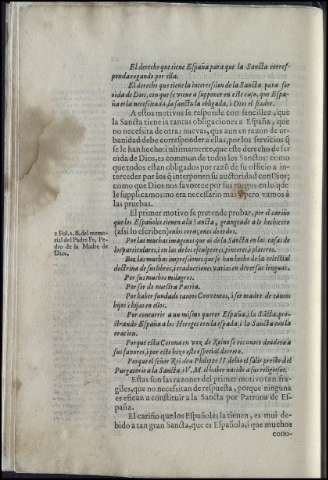 El derecho que tiene España para que la Sancta corres-
ponda rogando por ella.
El derecho que tiene la intercession de la Sancta para ser
oida de Dios, con que se viene a suponer en este caso, que Espa-
ña es la necesitada, la sancta la obligada, i Dios el fiador.
A estos motivos se responde con sencillez, que
la Sancta tiene tantas obligaciones a España, que
no necesita de otras nuevas, que aun en razon de ur-
banidad debe corresponder a ellas, por los servicios q̃
se le han hecho ultimamente, que este derecho de ser
oida de Dios, es commun de todos los Sanctos: como
que todos estan obligados por razõ de su officio a in-
terceder por los q̃ interponen su auctoridad con Dios;
como que Dios nos favorece por sus ruegos en lo que
le supplicamos no era necesario mas; pero vamos à
las pruebas.
El primer motivo se pretende probar, por el cariño
que los Españoles tienen a la Sancta, grangeado a lo hechicito
(assi lo escriben) en los coraçones de todos.
2 Fol. 1. B. del memo-
rial del Padre Fr. Pe-
dro de la Madre de
Dios.
Por las muchas imagenes que ai de la Sancta en las casas de
los particulares, i en las de los esculptores, pintores i plateros.
Por las muchas impressiones que se han hecho de la celestial
doctrina de sus libros, i traducciones varias en diversas lenguas.
Por sus muchos milagros.
Por ser de nuestra Patria.
Por haber fundado tantos Conventos, i ser madre de tantos
hijos i hijas en ellos.
Por concurrir a un mismo querer España, i la Sãcta, pos-
trando España a los Hereges con la espada, i la Sancta con la
oracion.
Porque esta Corona en voz de Reino se reconoce deudora a
sus favores, i por esto hizo este especial decreto.
Porque el señor Rei don Philippe II. debio el salir presto del
Purgatorio a la Sancta, i V. M. el haber nacido a sus religiosos.
Estas son las razones del primer motivo tan fra-
giles, que no necesitan de respuesta, porque ninguna
es eficaz a constituir a la Sancta por Patrona de Es-
paña.
El cariño que los Españoles la tienen, es mui de-
bido a tan gran Sancta, que es Española, i que muchos
como-